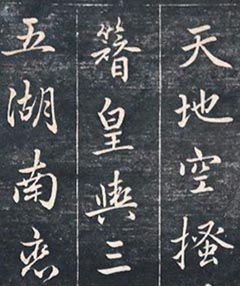 天地空搔
簪皇輿三
五湖南恋